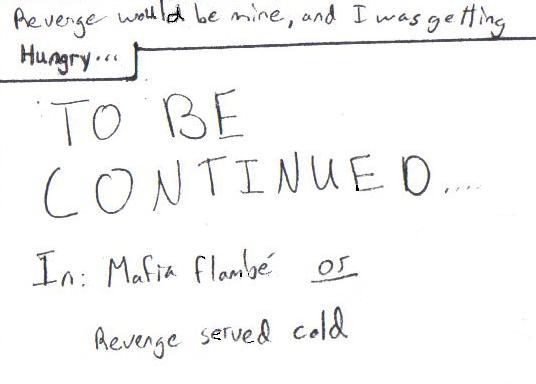 Revenge would be mine, and I was getting
Hungry...
TO BE
CONTINUED....
In: Mafia flambé or
Revenge served cold